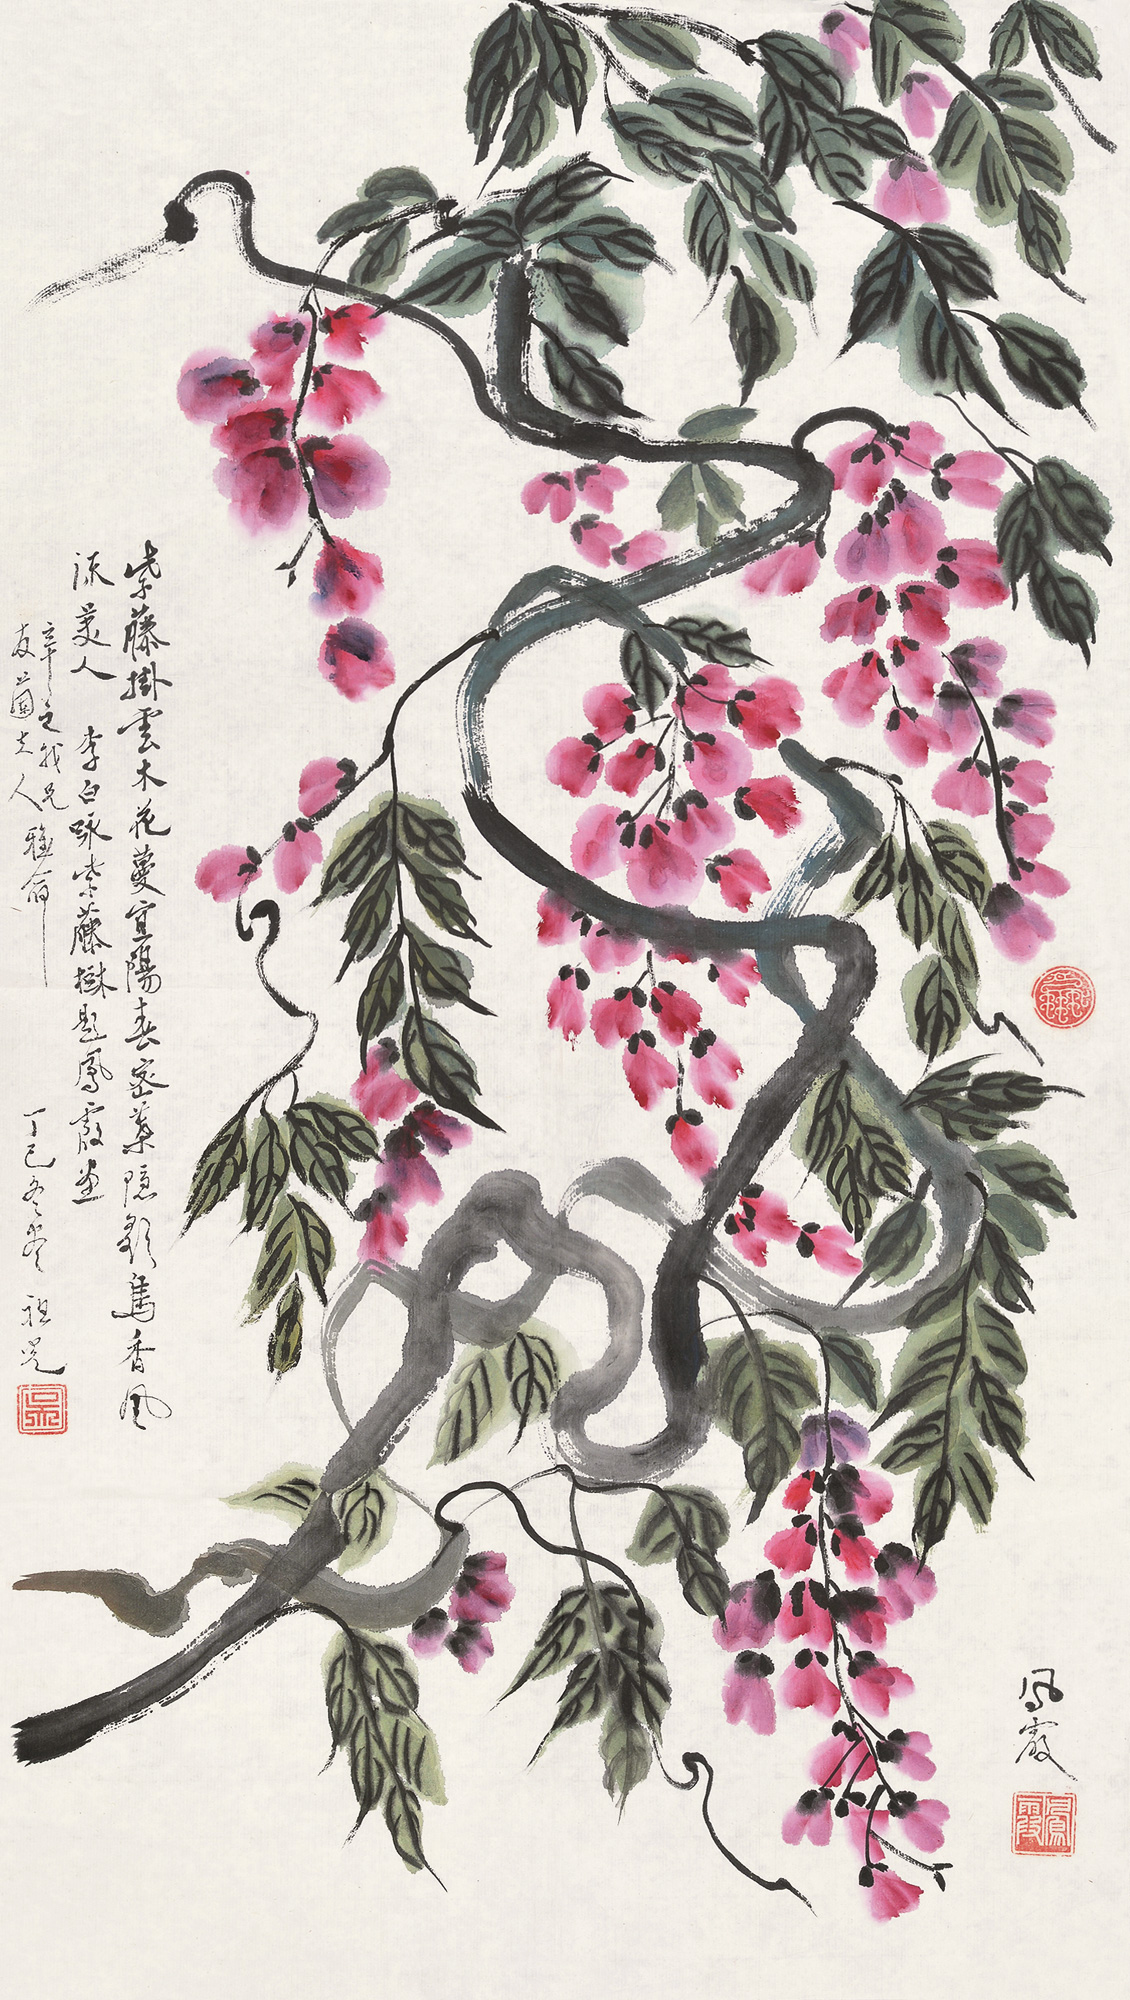 紫藤掛雲木花蔓宜陽春密葉隱歌鳥香風
流美人 李白咏紫藤樹題鳳霞畫
辛之我兄
友蘭夫人
雅命
丁巳冬尽 祖光
吳
鳳霞
鳳霞